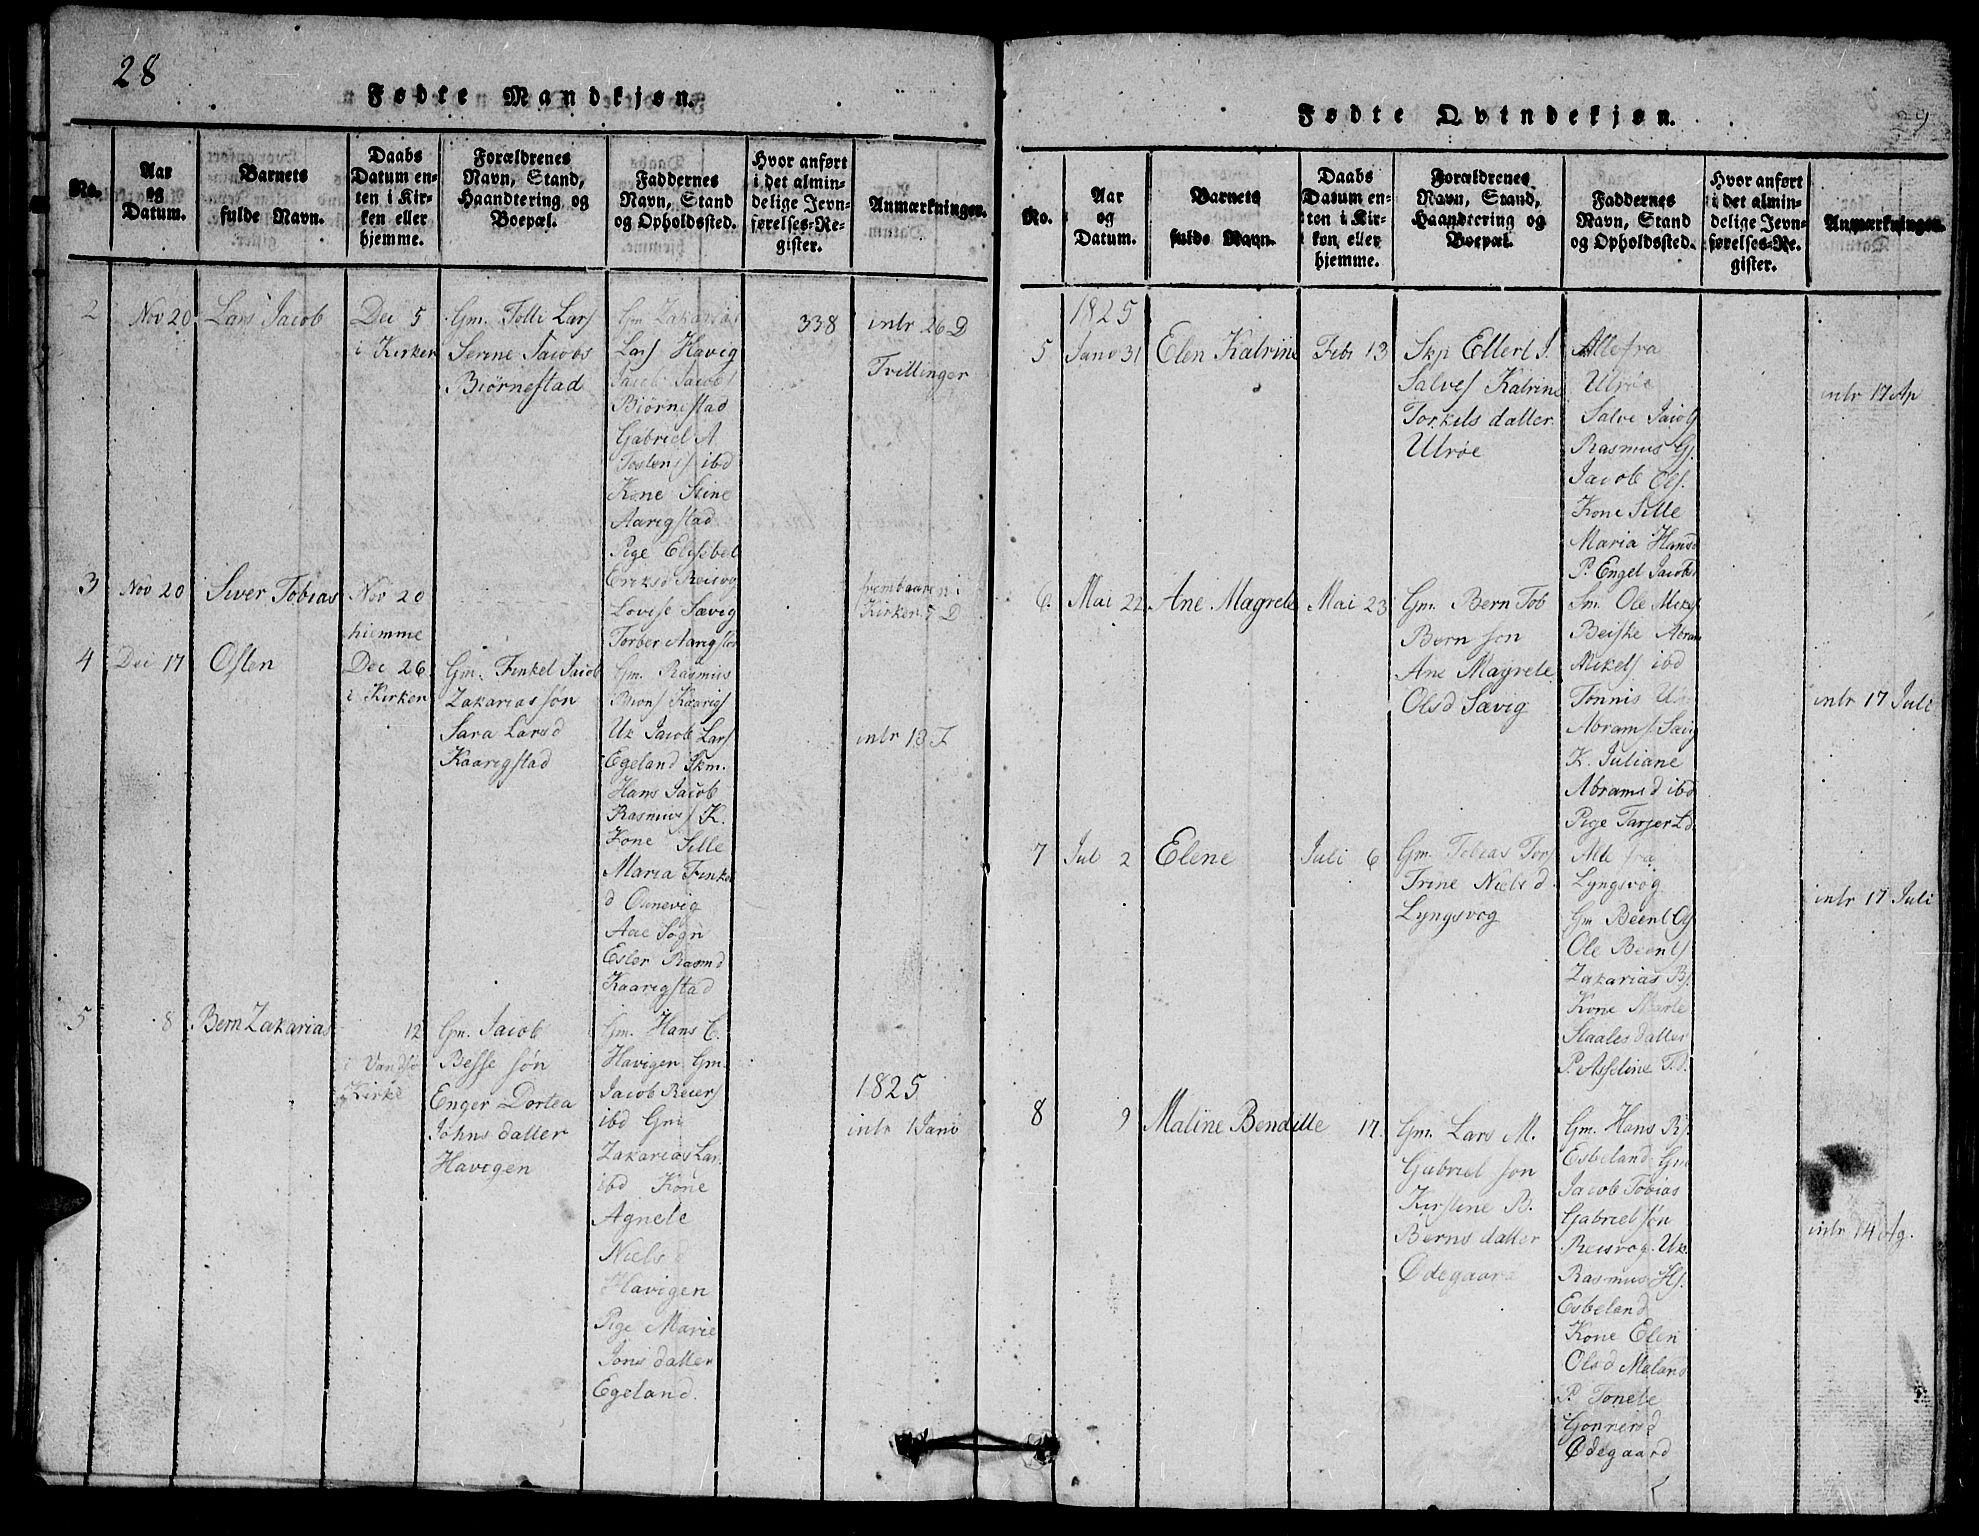 28
Fødte Mandkjøn.
No.
Aar
og
Datum.
Barnets
fulde Navn.
Daabs
Datum en-
ten i Kir-
ken eller
hjemme.
Forældrenes
Navn, Stand,
Haandtering og
Boepæl.
Faddernes
Navn, Stand
og Opholdssted.
Hvor anført
i det almin-
delige Jevn-
førelses-Re-
gister.
Anmærkninger.
2
Nov 20
Lars Jacob
Dec 5
i Kirken
Gm. Lars
Serine Jacobs
Biørnestad
Gm Zakarias
Lars Havig
Jacob Jacobs
Biørnestad
Gabriel A
Tostens ibd
Kone Stine
Aarigstad
Pige Elisbet
Eriksd Reisvog
338
intr 26 D
Tvillinger
3
Nov 20
Siver Tobias
Nov 20
hiemme
Lovise Sævig
Torber Aarigstad
hiembaaren i
Kirken 5 D
4
Dec 17
Osten
Dec 26
i Kirken
Gm. Finkel Jacob
Zakarias søn
Sara Larsd
Kaarigstad
Gm. Rasmus
Kaarigs
Uk Jacob Lars
Egeland Skm.
Hans Jacob
Rasmus K.
Kone Sille
Maria Finkel
d
Aae Sogn
Ester Rasmd
Kaarigstad
intr 13 F
5
8
Bern Zakarias
12
i Vandsø
Kirke
Gm. Jacob
Besse søn
Enger Dortea
Johns datter
Havigen
Gm. Hans C.
Havigen Gm.
Jacob Reiers
ibd Gm
Zakarias Lar.
ibd Kone
Agnete
Niels d
Havigen
Pige Marie
Jons datter
Egeland.
1825
intr 1 Jano
29
Fødte Qvindekjøn.
No.
Aar
og
Datum.
Barnets
fulde Navn.
Daabs
Datum en-
ten i Kir-
ken eller
hjemme.
Forældrenes
Navn, Stand,
Haandtering og
Boepæl.
Faddernes
Navn, Stand
og Opholdssted.
Hvor anført
i det almin-
delige Jevn-
førelses-Re-
gister.
Anmærkninger.
1825
5
Jano 31
Elen Katrine
Febr 13
Skp Ellert J.
Salves Katrine
Torkils datter
Ulrøe
Alle fra
Ulrøe
Salve Jacobs
Rasmus G.
Jacob Ols.
Kone Sille
Maria Hansd
P. Engel Jacobs
intr 17 Ap
6.
Mai 22
Ane Magrete
Mai 23
Gm. Bern Tob
Bern søn
Ane Magrete
Olsd Sævig
Sm. Ole Mikels
Beiske Abram
Mikels ibd
Tonnis
Abrams Saig
K. Juliane
Abramsd ibd
Pige Tarjer L.d.
intr 17 Juli
7
Jul 2
Elene
Juli 6
Gm. Tobias Tors
Trine Niels d.
Lyngsvog
Alle fra
Lyngsvog
Gm Beent
Ole Beents
Zakarias B.
Kone Marte
Staales datter
P. Asseline T.d.
intr 17 Juli
8
9
Maline Benditte
17
Gm. Lars M.
Gabriel søn
Kirstine B.
Berns datter
Ødegaard
Gm. Hans R.
Esbeland Gm
Jacob Tobias
Gabriel søn
Reisvog. Uk.
Rasmus H.
Esbeland
Kone Elen
Olsd Meland
P. Tonete
Gonnersd
Ødegaard
intr 14 Ag.